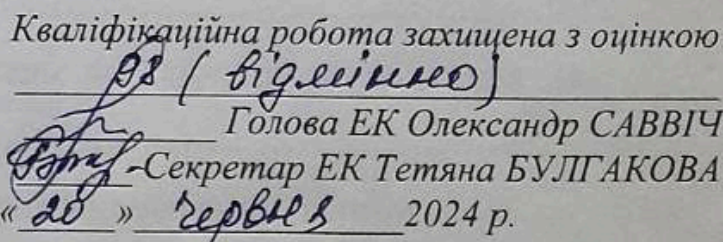 Кваліфікаційна робота захищена з оцінкою
98 (відмінно)
Голова ЕК Олександр САВВІЧ
Секретар ЕК Тетяна БУЛГАКОВА
«20» червня 2024 р.